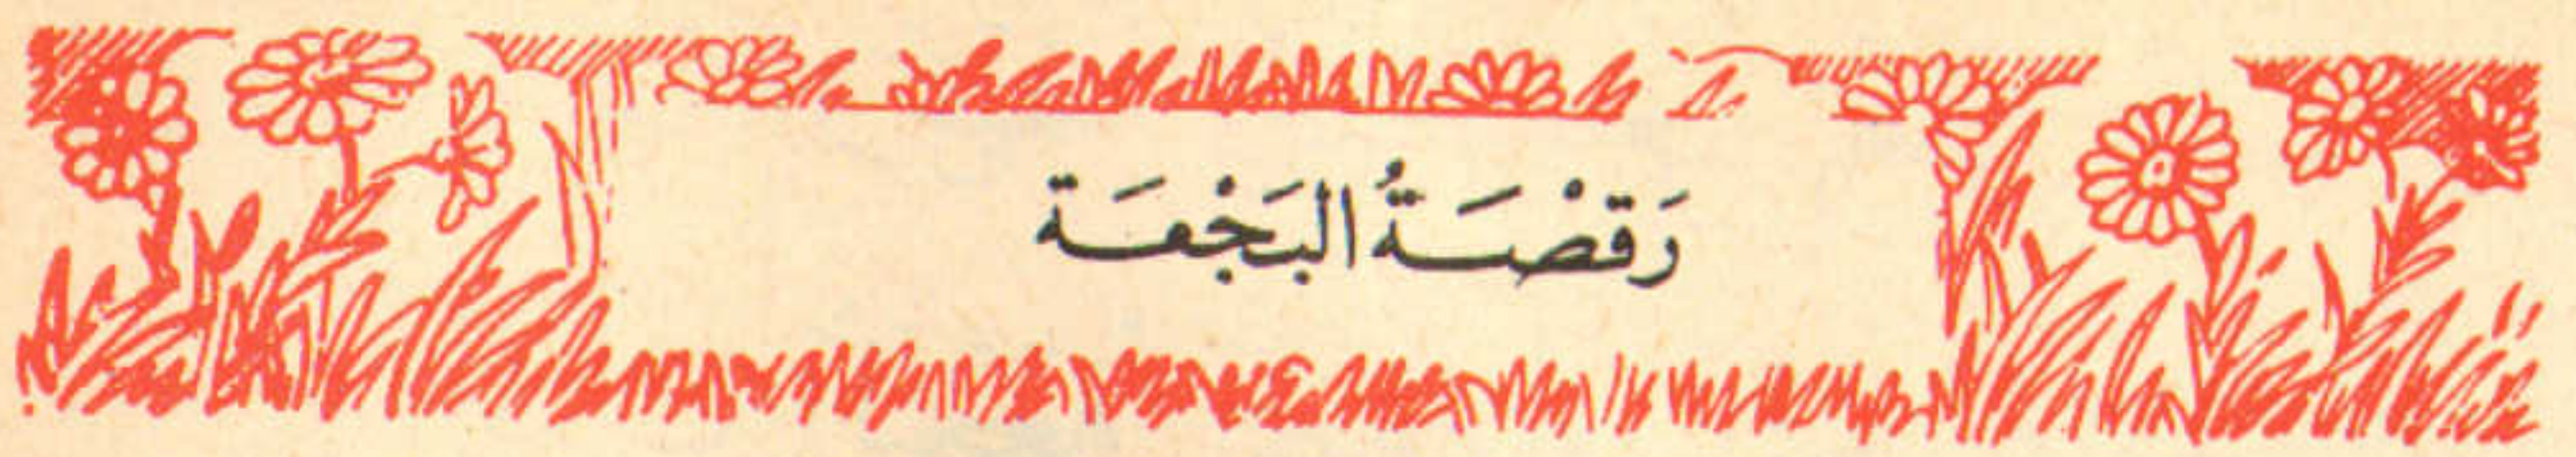 رَقْصَةُ البَجْعَة